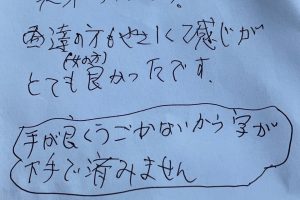 の方もやさしくて感じが
(女の方)
とても良かったです.
手が良くうごかないから字が
下手で済みません